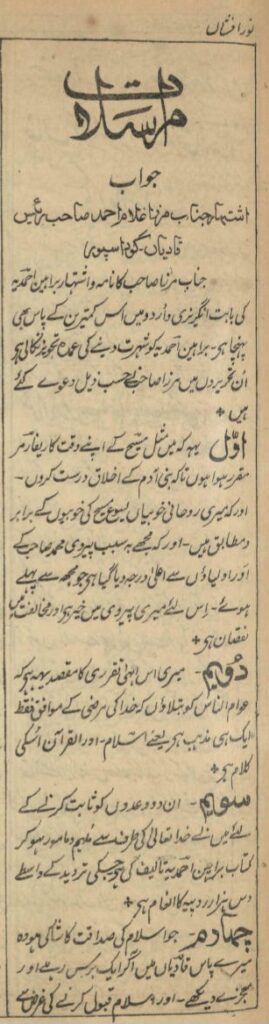 نور افشاں
مراسلات
جواب
اشتہار جناب مرزا غلام احمد صاحب رئیس
قادیاں۔ گورداسپور
جناب مرزا صاحب کا نامہ و اشتہار براہین احمدیہ
کی بابت انگریزی و اردو میں اس کمترین کے پاس بھی
پہنچا ہی۔ براہین احمدیہ کو شہرت دینے کی عمدہ تجویز نکالی ہی
اُن تحریروں میں مرزا صاحب نے حسب ذیل دعوے کئے
ہیں +
اوّل یہہ کہ میں مثل مسیح کے اپنے وقت کا ریفارمر
مقرر ہوا ہوں تاکہ بنی آدم کے اخلاق درست کروں۔
اور کہ میری روحانی خوبیاں یسوع مسیح کی خوبیوں کے برابر
و مطابق ہیں۔ اور کہ مجھے بہ سبب پیروی محمد صاحب کے
اور اولیاؤں سے اعلیٰ درجہ دیا گیا ہی جو مجھ سے پہلے
ہوئے۔ اِس لئے میری پیروی میں خیر ہی اور مخالفت میں
نقصان ہی +
دُویم۔ میری اس الٰہی تقرری کا مقصد یہہ ہی کہ
عوام الناس کو بتلاؤں کہ خدا کی مرضی کے موافق فقط
ایک ہی مذہب ہی یعنے اسلام۔ اور القرآن اُسکی
کلام ہی +
سویم۔ ان دو وعدوں کو ثابت کرنے کے
لئے میں نے خدا تعالیٰ کی طرف سے ملہم و مامور ہو کر
کتاب براہین احمدیہ تالیف کی ہی جسکی تردید کے واسطے
دس ہزار روپیہ کا انعام ہی +
چہارم۔ جو اسلام کی صداقت کا شاکی ہو وہ
میرے پاس قادیاں میں آکر ایک برس رہے اور
معجزے دیکھے۔ اور اسلام قبول کرنے کی غرض سے